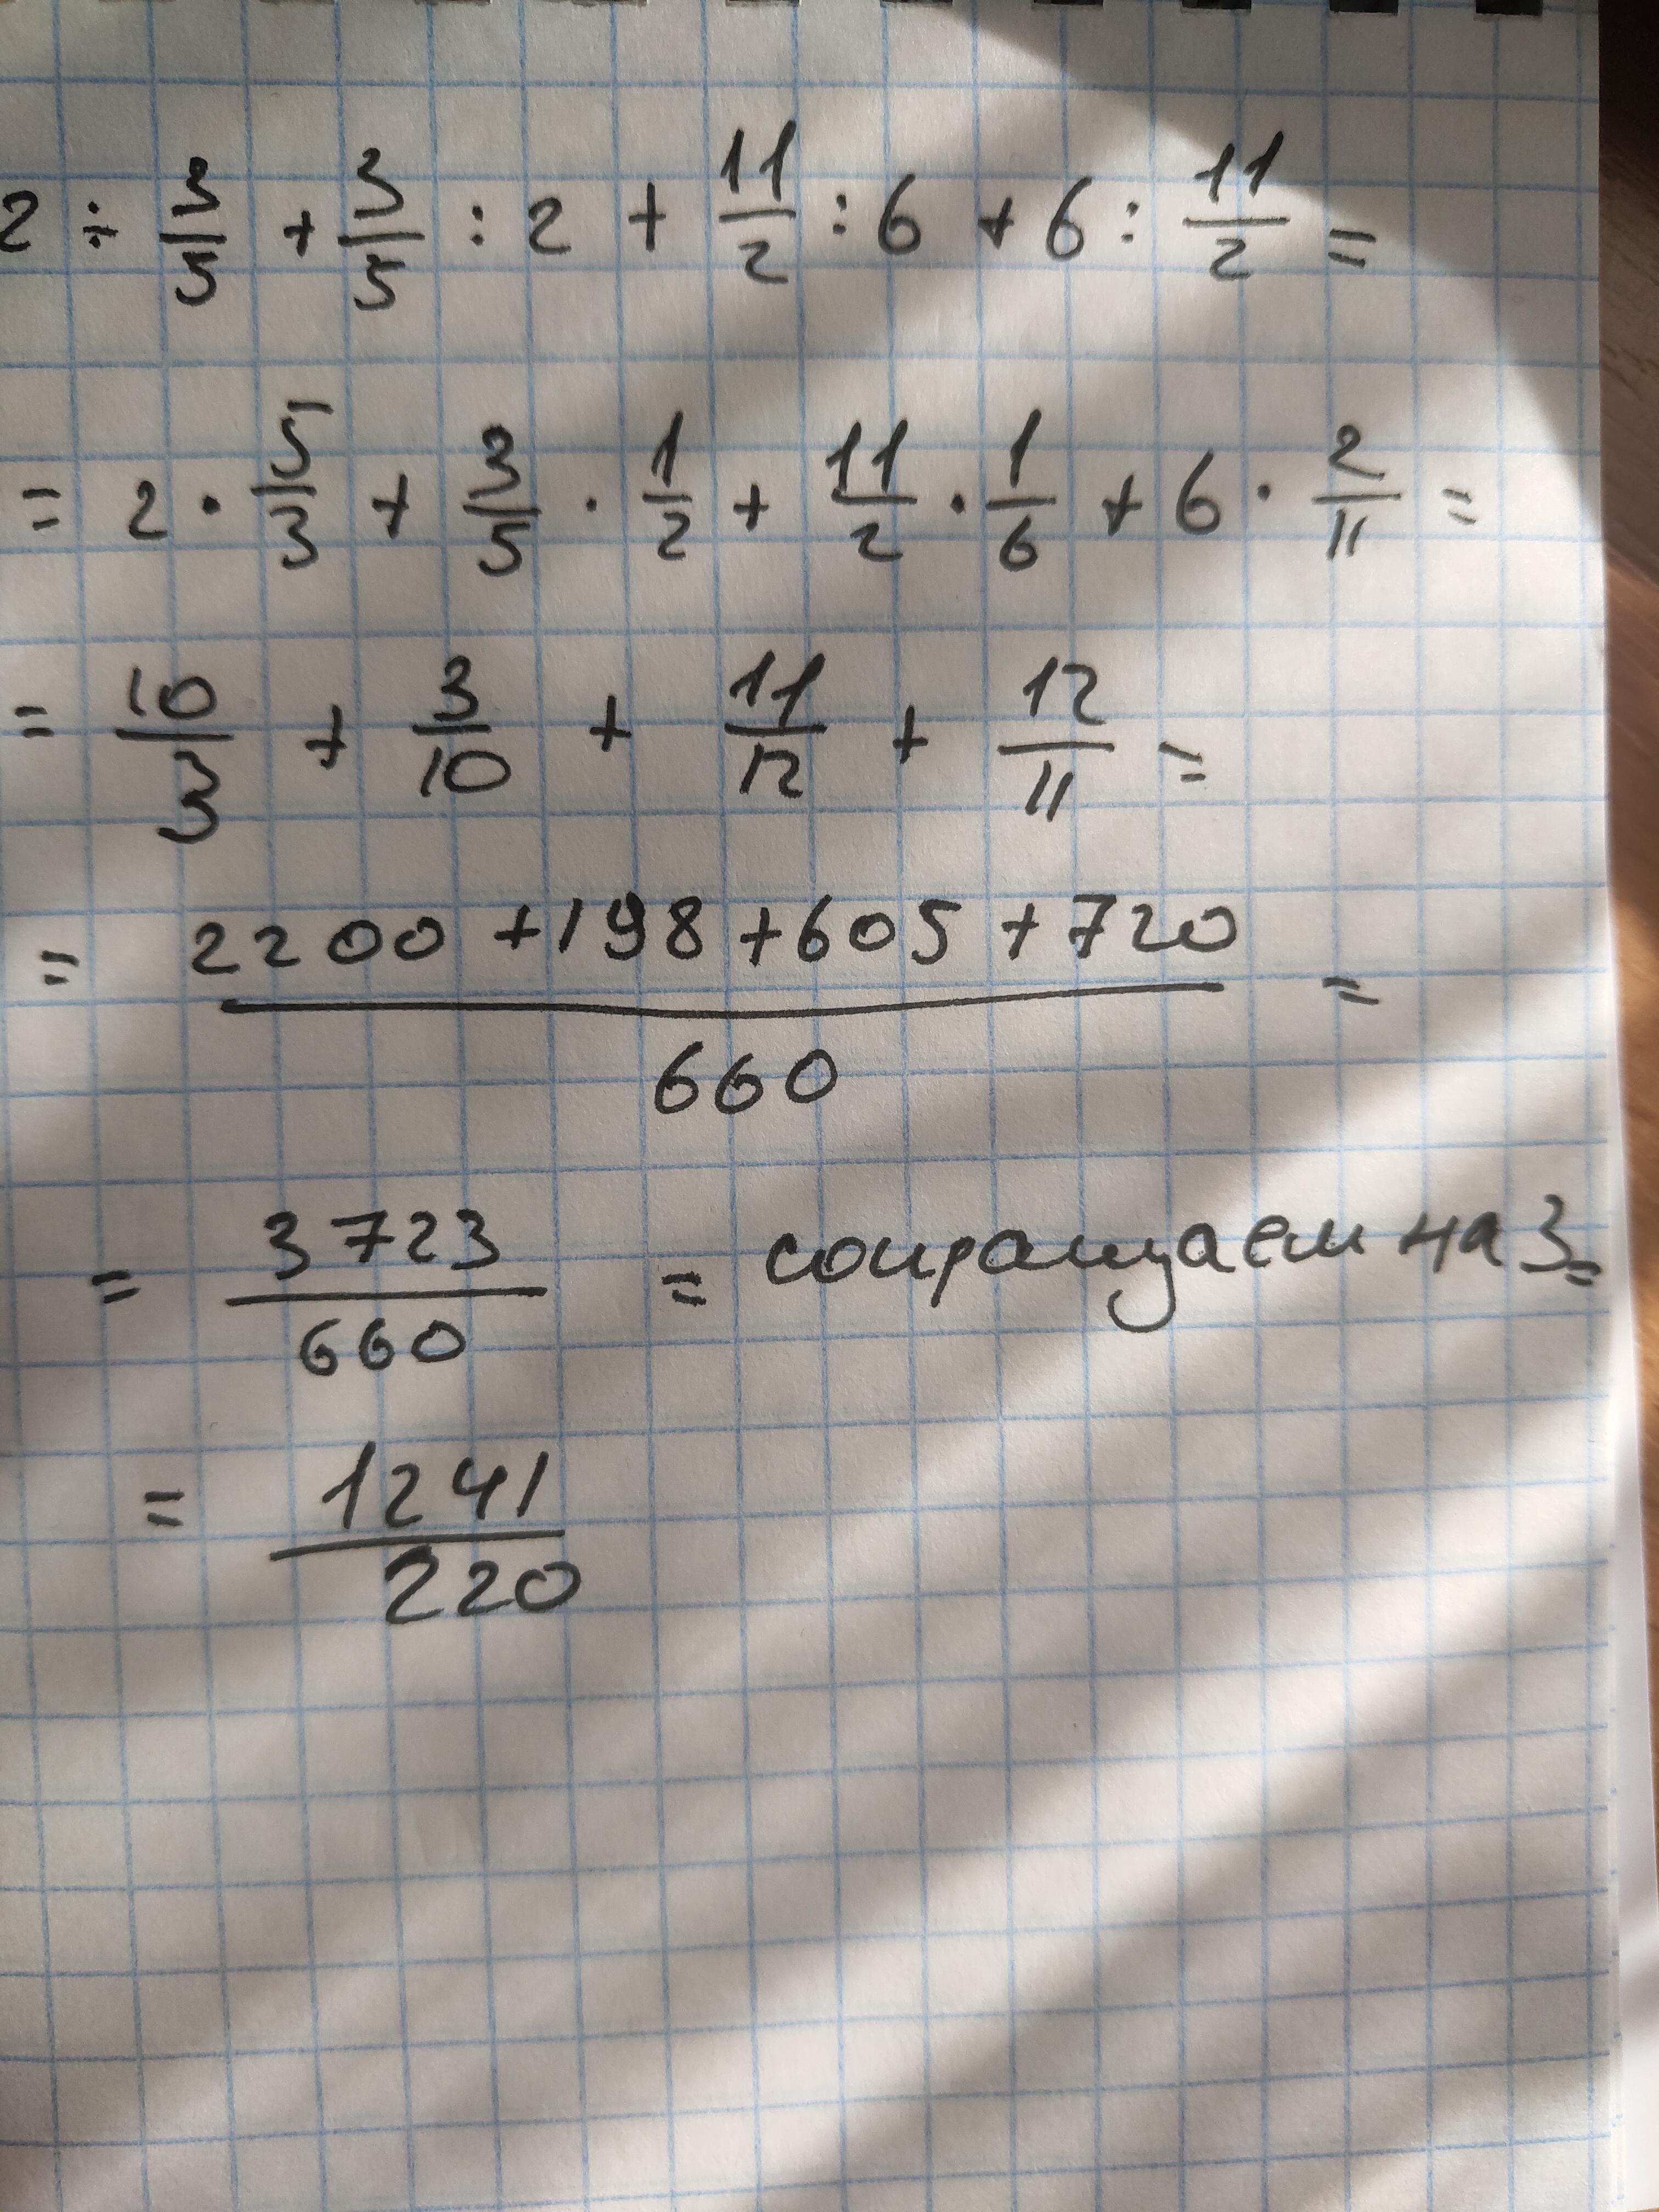 2 ÷ 3/5 + 3/5 : 2 + 11/2 : 6 + 6 : 11/2 =
= 2 · 5/3 + 3/5 · 1/2 + 11/2 · 1/6 + 6 · 2/11 =
= 10/3 + 3/10 + 11/12 + 12/11 =
= 2200 + 198 + 605 + 720 / 660 =
= 3723/660 = сокращаем на 3 =
= 1241/220